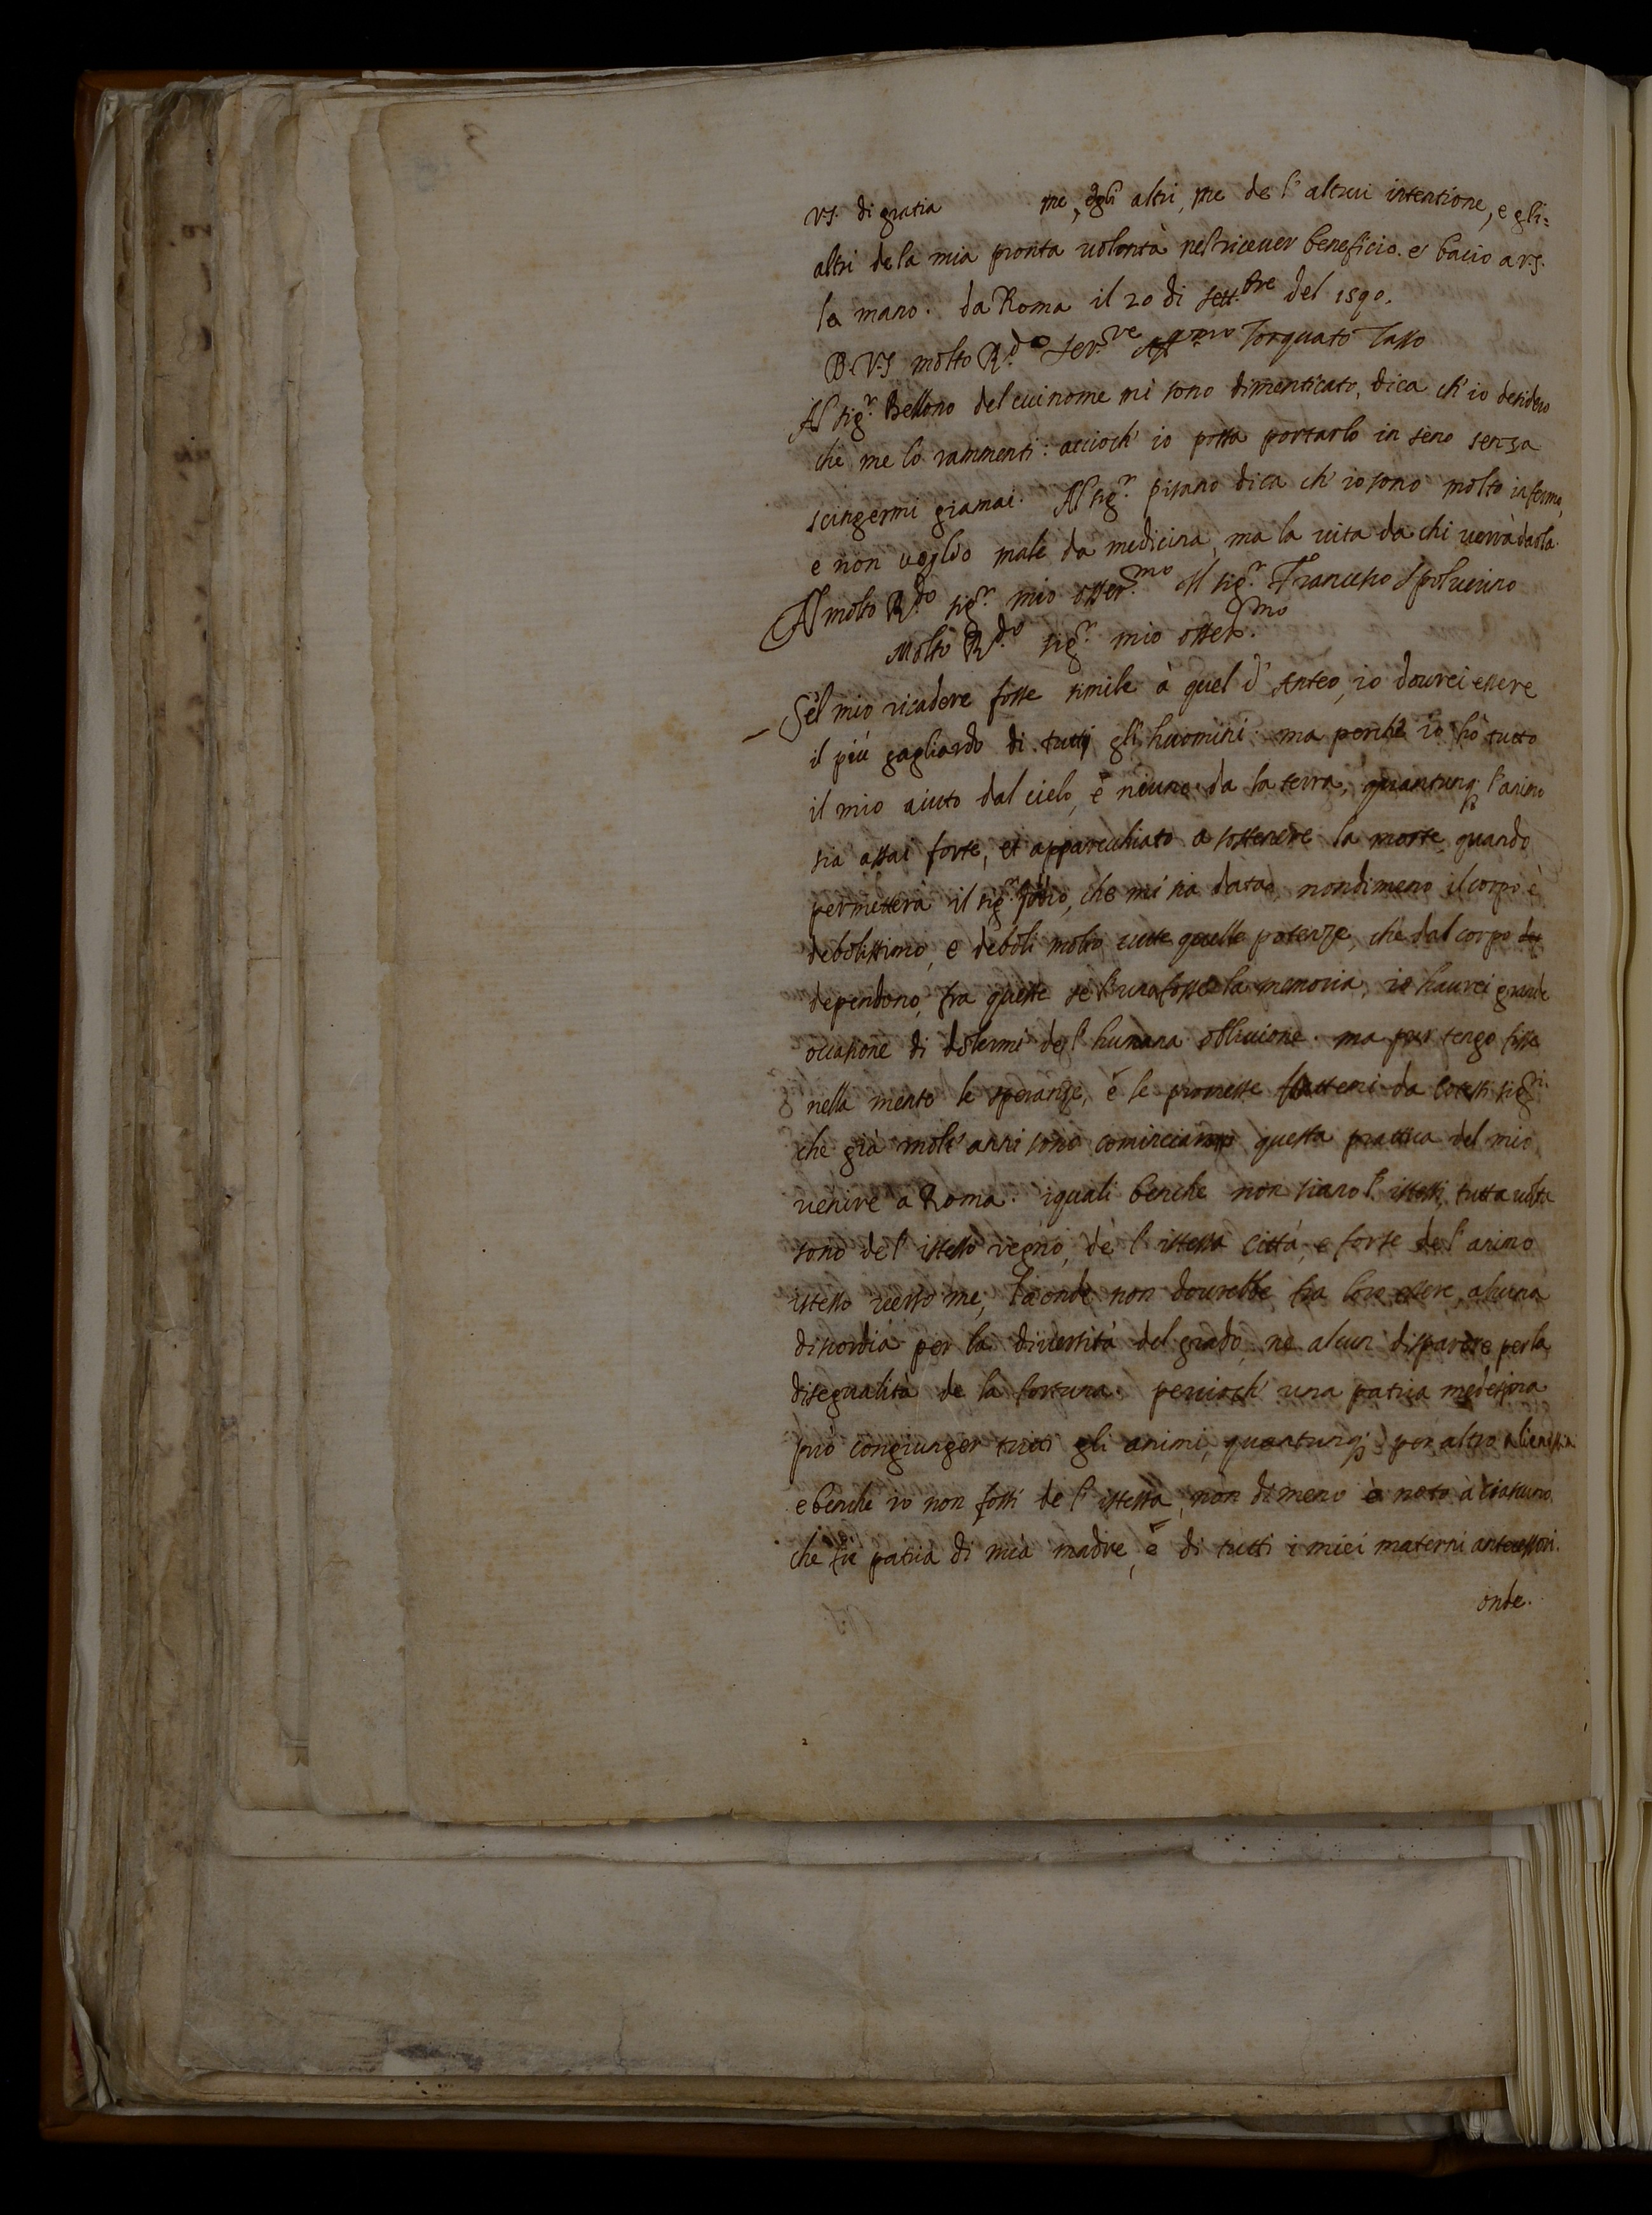 V.S. di gratia me, e gli altri, me de l'altrui intentione, e gli=
altri de la mia pronta uolontà nel riceuer beneficio. et bacio a V.S.
la mano. da Roma il 20 di sett.bre del 1590.
D.V.S molto R.do Ser.ve Aff.mo Torquato Tasso
Al sig.r Bellono del cui nome mi sono dimenticato, dica ch'io desidero
che me lo rammenti: accioch' io possa portarlo in seno senza
scingermi giamai. Al sig.r pisano dica ch' io sono molto infermo,
e non uoglio male da medicina, ma la uita da chi uorrà darla.
Al molto R.do sig.r mio osser.mo Il sig.r Francesco Spoluerino
Molto R.do sig.r mio osser.mo
Se'l mio ricadere fosse simile à quel d' Anteo, io dourei essere
il più gagliardo di tutti gli huomini. ma perche io hò tutto
il mio aiuto dal cielo, è niuno da la terra, quantunq; l'animo
sia assai forte, et apparecchiato a sostenere la morte quando
permetterà il sig.r Iddio, che mi sia data, nondimeno il corpo è
debolissimo, e deboli molto tutte quelle potenze, che dal corpo
dependono, fra queste se l'una fosse la memoria, io haurei grande
occasione di dolermi de l' humana obliuione. ma pur tengo fisse
nella mente le speranze, è le promesse fattemi da cotesti sig.ri
che già molt' anni sono cominciaro questa prattica del mio
uenire a Roma. iquali benche non siano l' istessi, tutta uolta
sono de l' istesso regno, de l' istessa Città, e forse de l' animo
istesso uerso me, la onde non dourebbe fra loro essere alcuna
discordia per la diuersità del grado, ne alcun disparere per la
disegualità de la fortuna. percioch' una patria medesima
può congiunger tutti gli animi, quantunq; per altro alienissimi
e benche io non fossi de l' istessa, non dimeno è noto à ciascuno
che fù patria di mia madre, è di tutti i miei materni antecessori.
onde.